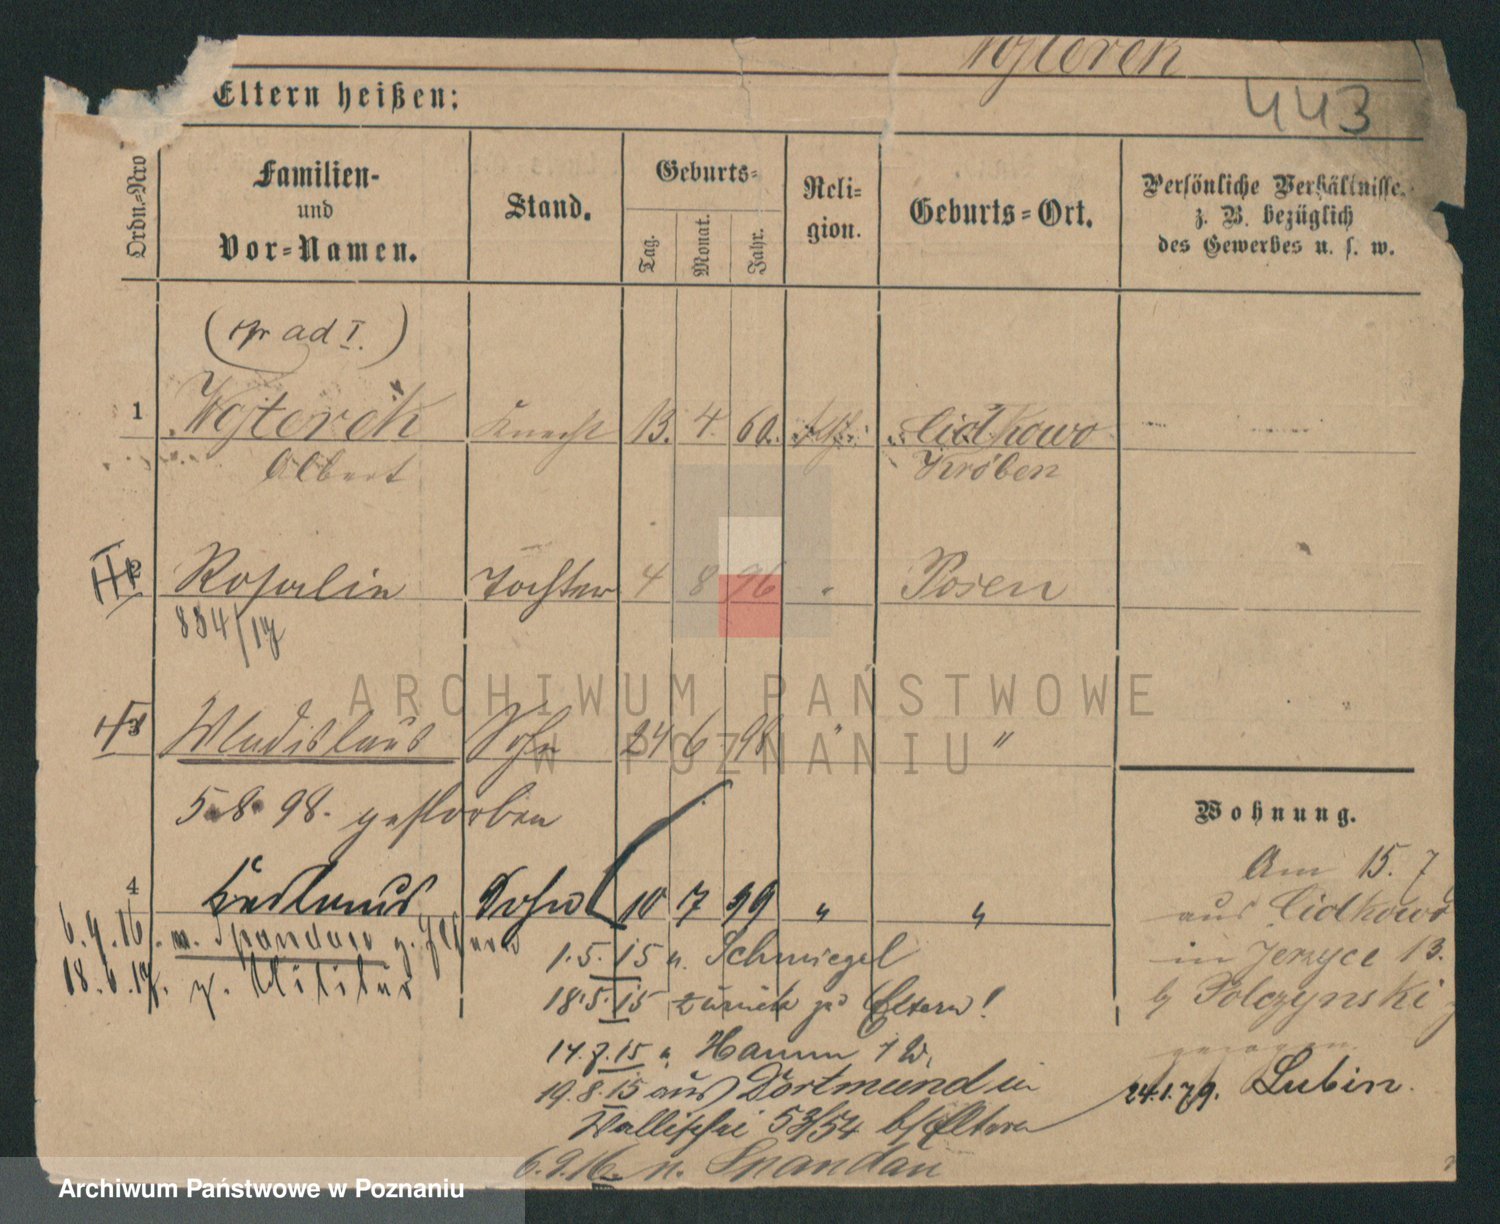 Wojtereck
443
Eltern heißen:
Ordn.-Nro
Familien-
und
Vor-Namen.
Stand.
Geburts-
Tag.
Monat.
Jahr.
Reli-
gion.
Geburts-Ort.
Persönliche Verhältnisse
z. B. bezüglich
des Gewerbes u. s. w.
ad I.
1 Knecht 13. 4. 60.
Albert Kröben
2 Rosalie Tochter 4 8 96 " Posen
854/17
3 Wladislaus Sohn 24 6 98 " "
5.8.98. gestorben
Wohnung.
Am 15. 7
4 Sohn 10 7 99 " "
aus
6.9.16. n. Spandau z.
1.5.15 n. Schmiegel
in Jerzyce 13.
18.6.17. z. Militär
18.5.15 zurück zu Eltern!
b/ Polczynski
gezogen.
14.7.15 n Hamm i W.
19.8.15 aus Dortmund in
24.1.79. Lubin.
Wallischei 53/54 b/Eltern
6.9.16. n. Spandau
ARCHIWUM PAŃSTWOWE
W POZNANIU
Archiwum Państwowe w Poznaniu